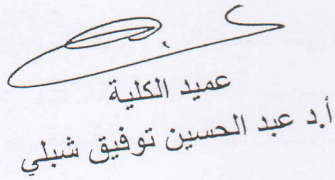 عميد الكلية
أ.د عبد الحسين توفيق شبلي